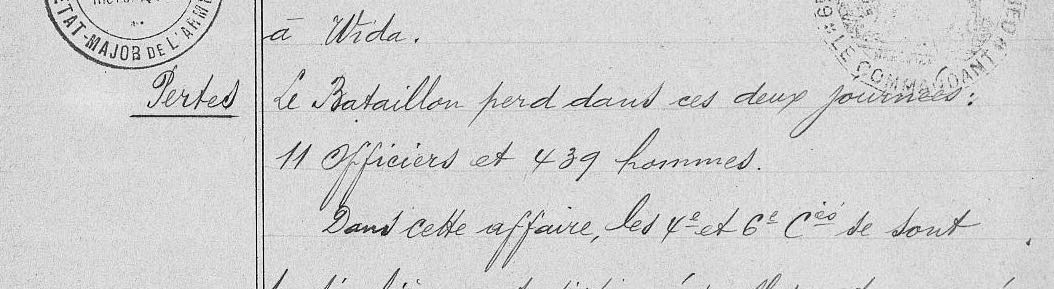 ETAT-MAJOR DE L'ARMÉ
à Wida.
LE COMMANDANT
Pertes
Le Bataillon perd dans ces deux journées:
11 Officiers et 439 hommes.
Dans cette affaire, les 4e et 6e Cies se sont